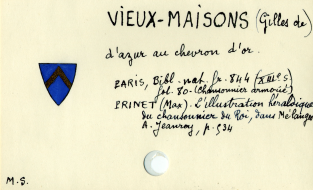 VIEUX-MAISONS (Gilles de)
d'azur au chevron d'or.
PARIS, Bibl. nat. fr. 844 (XIIIe s)
fol. 80 - (Chansonnier armorié)
PRINET (Max). L'illustration héraldique
du chansonnier du Roi, dans Mélanges
A. Jeanroy, p. 534
M.S.